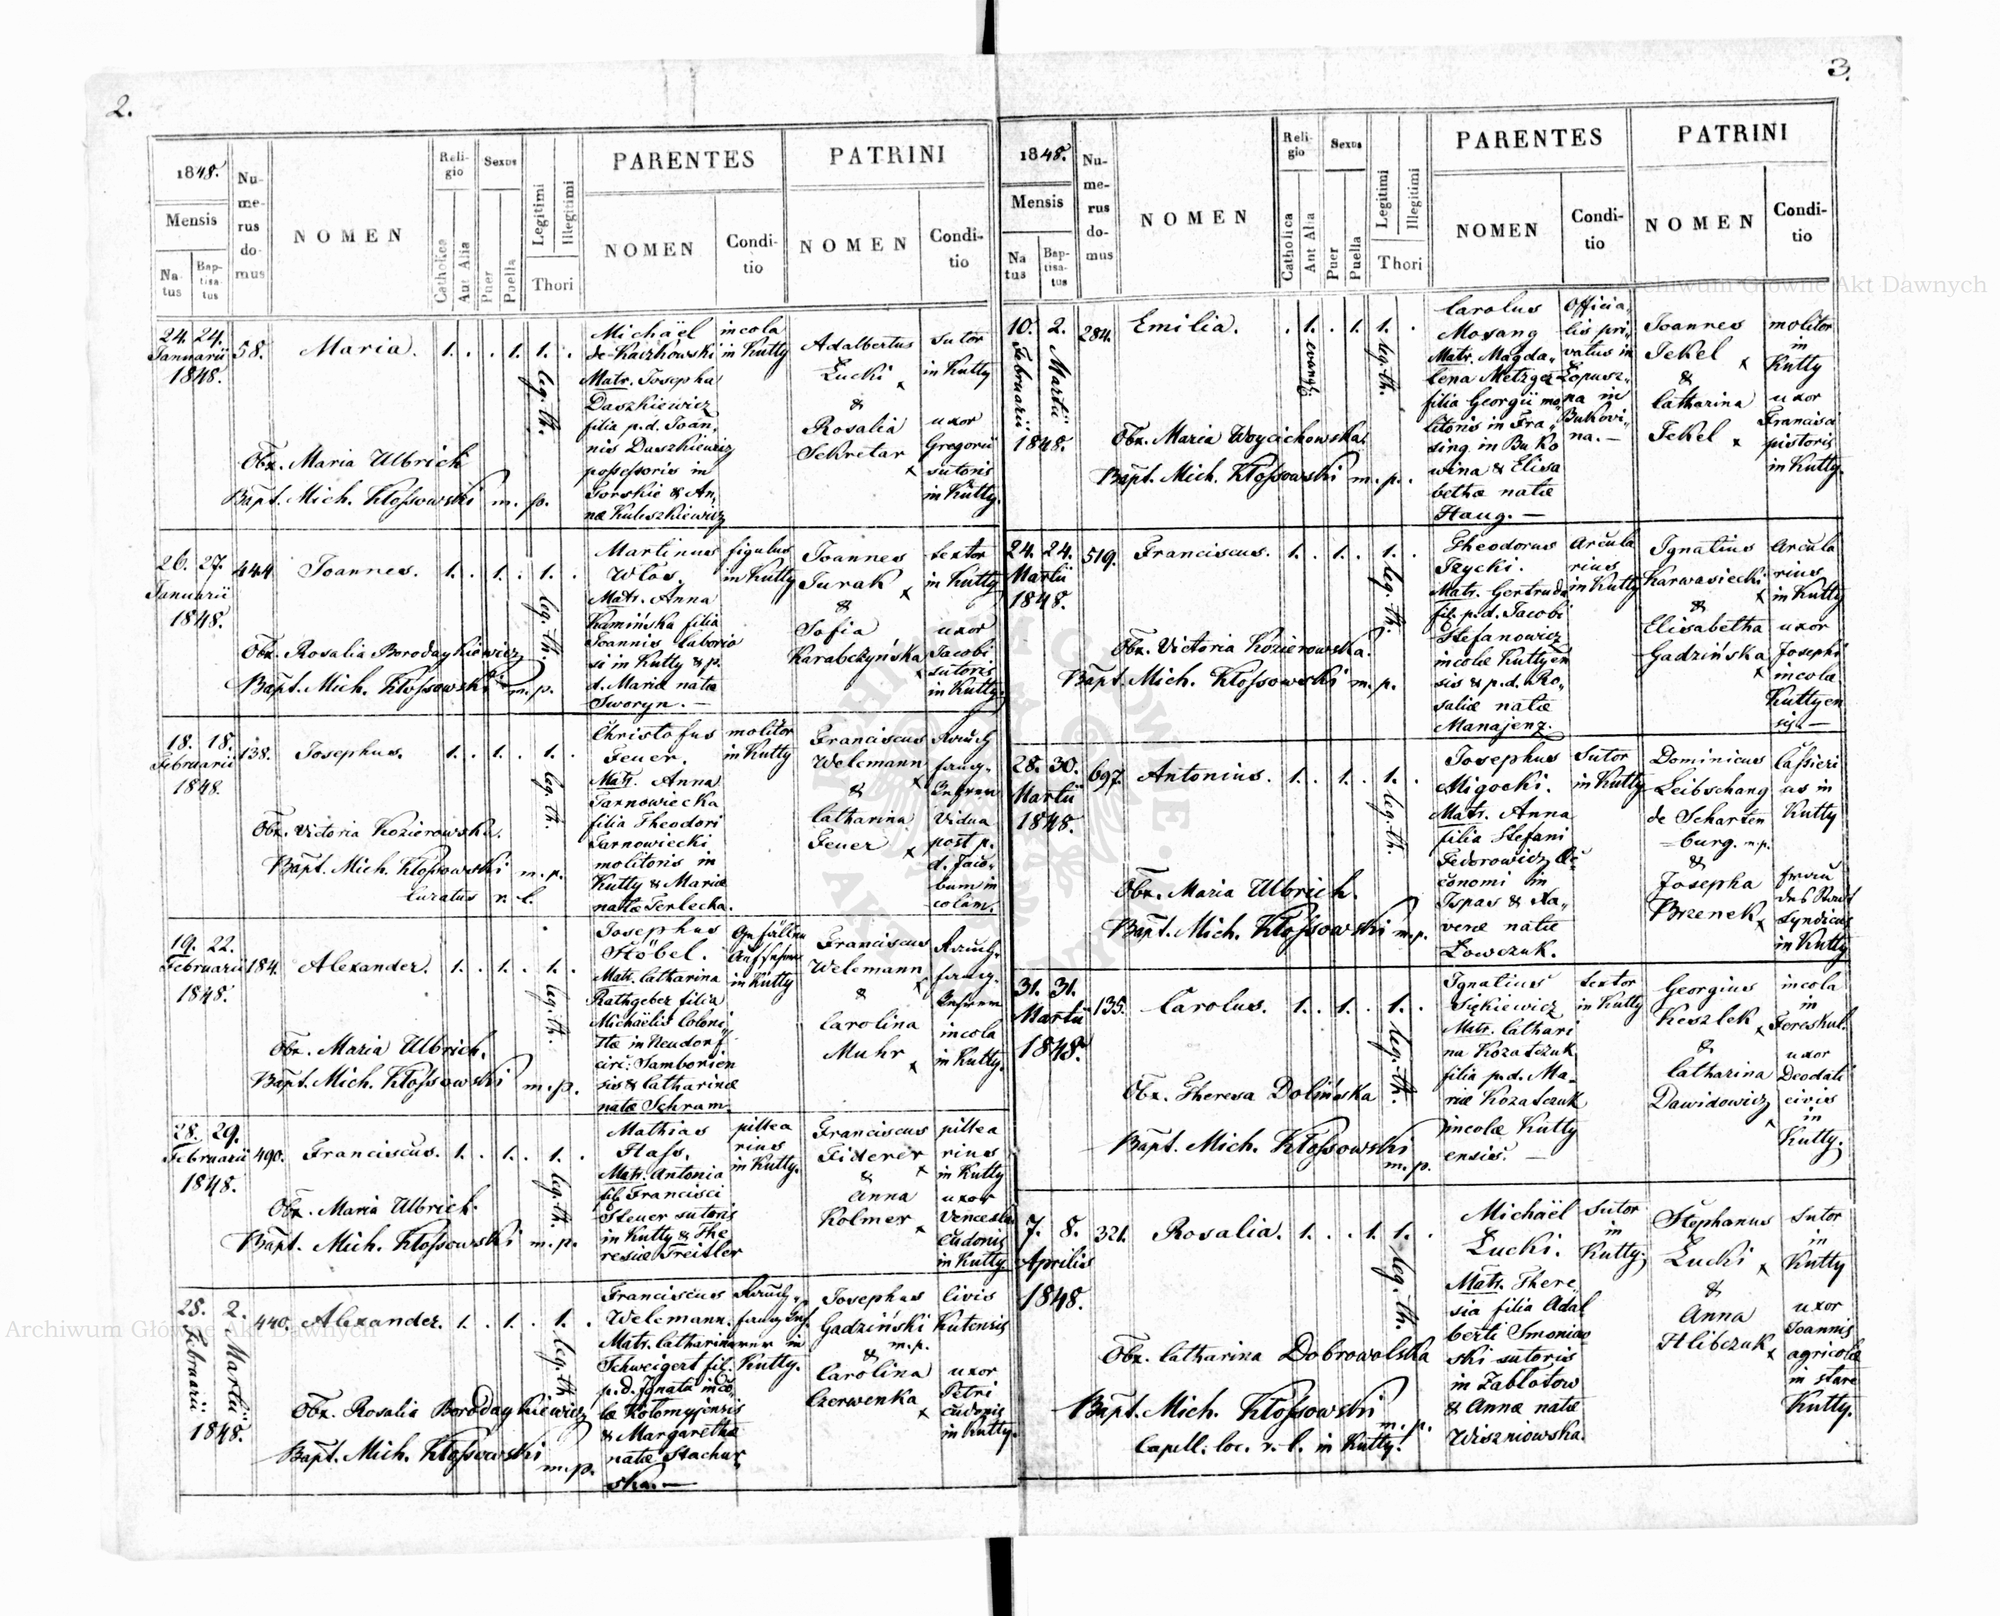 2.
1848.
Mensis
Na-
tus
Bap-
tisa-
tus
Nu-
me-
rus
do-
mus
NOMEN
Reli-
gio
Catholica
Aut Alia
Sexus
Puer
Puella
Legitimi
Illegitimi
Thori
PARENTES
NOMEN
Condi-
tio
PATRINI
NOMEN
Condi-
tio
24. 24.
Januarii
1848.
58.
Maria.
1. . . 1. 1. .
leg. th.
Obx. Maria Ulbrich
Bapt. Mich. Kłossowski m. p.
Michäel
de Kaczkowski
Matr. Josepha
Daszkiewicz
filia p. d. Joan,
nis Daszkiewicz
possessoris in
Torskie & An,
næ Kuleszkiewicz
incola
in Kutty
Adalbertus
Łucki x
&
Rosalia
Sekretar x
Sutor
in Kutty
uxor
Gregorii
sutoris
in Kutty.
26. 27.
Januarii
1848.
444
Joannes.
1. . 1. . 1. .
leg. th.
Obx. Rosalia Borodaykiewicz
Bapt. Mich. Kłossowski m. p.
Martinus
Włos.
Matr. Anna
Kamińska filia
Joannis laborio
si in Kutty & p.
d. Mariæ natæ
Sworyn. —
figulus
in Kutty
Joannes
Jurak x
&
Sofia
Karabczyńska x
textor
in Kutty
uxor
Jacobi
sutoris
in Kutty.
18. 18.
Februarii
1848.
138.
Josephus.
1. . 1. . 1. .
leg. th.
Obx. Victoria Kozierowska.
Bapt. Mich. Kłossowski m. p.
Curatus r. l.
Christofus
Feuer.
Matr. Anna
Tarnowiecka
filia Theodori
Tarnowiecki
molitoris in
Kutty & Mariæ
natæ Terlecka.
molitor
in Kutty
Franciscus
Welemann x
&
Catharina
Feuer x
Rauch
fang-
Vidua
post p.
d. Jaco-
bum in
colam.
19. 22.
Februarii
1848.
184.
Alexander.
1. . 1. . 1. .
leg. th.
Obx. Maria Ulbrich.
Bapt. Mich. Kłossowski m. p.
Josephus
Höbel.
Matr. Catharina
Rathgeber filia
Michäelis Coloni
stæ in Neudorf
circ: Samborien
sis & Catharinæ
natæ Schram.
Gefällen
Aufseher
in Kutty
Franciscus
Welemann x
&
Carolina
Muhr x
Rauch-
fang-
incola
in Kutty.
28. 29.
Februarii
1848.
490.
Franciscus.
1. . 1. . 1. .
leg. th.
Obx. Maria Ulbrich.
Bapt. Mich. Kłossowski m. p.
Mathias
Hass.
Matr. Antonia
fil. Francisci
Steuer sutoris
in Kutty & The
resiæ Treitler
pillea
rius
in Kutty.
Franciscus
Fiderer x
&
Anna
Kolmer x
pillea
rius
in Kutty
uxor
Venceslai
cudonis
in Kutty.
28. Februarii
2. Martii
1848.
440.
Alexander.
1. . 1. . 1. .
leg. th.
Obx. Rosalia Borodaykiewicz
Bapt. Mich. Kłossowski m. p.
Franciscus
Welemann.
Matr. Catharina
Schweigert fil.
p. d. Ignatii inco,
læ Kołomyjensis
& Margarethæ
natæ Stachur
ska. —
Rauch-
in
Kutty.
Josephus
Gadziński
m. p.
&
Carolina
Czerwenka x
Civis
Kutensis
uxor
Petri
cudonis
in Kutty.
3.
1848.
Mensis
Na
tus
Bap-
tisa-
tus
Nu-
me-
rus
do-
mus
NOMEN
Reli-
gio
Catholica
Aut Alia
Sexus
Puer
Puella
Legitimi
Illegitimi
Thori
PARENTES
NOMEN
Condi-
tio
PATRINI
NOMEN
Condi-
tio
10. Februarii
2. Martii
1848.
284.
Emilia.
. 1. . 1. 1. .
evang.
leg. th.
Obx. Maria Woycichowska.
Bapt. Mich. Kłossowski m. p.
Carolus
Mosang
Matr. Magda,
lena Metzger
filia Georgii mo
litoris in Fra,
sing in Buko
wina & Elisa
bethæ natæ
Haug. —
Officia,
lis pri,
vatus in
Łopusz,
na in
Bukovi,
na. —
Joannes
Jekel x
&
Catharina
Jekel x
molitor
in
Kutty
uxor
Francisci
pistoris
in Kutty.
24. 24.
Martii
1848.
519.
Franciscus.
1. . 1. . 1. .
leg. th.
Obx. Victoria Kozierowska.
Bapt. Mich. Kłossowski m. p.
Theodorus
Tzycki.
Matr. Gertruda
fil. p. d. Jacobi
Stefanowicz
incolæ Kuttyen
sis & p. d. Ro,
saliæ natæ
Manajenz.
Arcula
rius
in Kutty
Ignatius
Karwasiecki x
&
Elisabetha
Gadzińska x
Arcula
rius
in Kutty
uxor
Josephi
incola
Kuttyen
sis —
28. 30.
Martii
1848.
697.
Antonius.
1. . 1. . 1. .
leg. th.
Obx. Maria Ulbrich.
Bapt. Mich. Kłossowski m. p.
Josephus
Migocki.
Matr. Anna
filia Stefani
Fedorowicz Œ
conomi in
Ispas & Xa,
veræ natæ
Łowczuk.
Sutor
in Kutty
Dominicus
Leibschang
de Scharten
burg. m. p.
&
Josepha
Brzenek x
Cassieri
us in
Kutty
Frau
des Stadt
Syndicus
in Kutty
31. 31.
Martii
1848.
135.
Carolus.
1. . 1. . 1. .
leg. th.
Obx. Theresa Dolińska
Bapt. Mich. Kłossowski m. p.
Ignatius
Siękiewicz
Matr. Cathari
na Kozatczuk
filia p. d. Ma-
riæ Kozatczuk
incolæ Kutty
ensis. —
textor
in Kutty
Georgius
Keszlek x
&
Catharina
Dawidowicz x
incola
in
Fereskul.
uxor
Deodati
civis
in
Kutty.
7. 8.
Aprilis
1848.
321.
Rosalia.
1. . . 1. 1. .
leg. th.
Obx. Catharina Dobrowolska
Bapt. Mich. Kłossowski m. p.
Capell. loc. r. l. in Kutty.
Michäel
Łucki.
Matr. There,
sia filia Adal
berti Smoniao
ski sutoris
in Zabłotow
& Annæ natæ
Wiszniowska.
Sutor
in
Kutty.
Stephanus
Łucki x
&
Anna
Hlibczuk x
Sutor
in
Kutty
uxor
Joannis
agricolæ
in stare
Kutty.
Archiwum Główne Akt Dawnych
Archiwum Główne Akt Dawnych